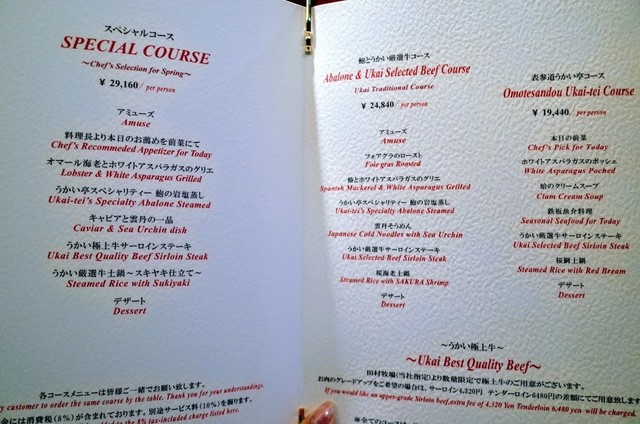 スペシャルコース
SPECIAL COURSE
～Chef's Selection for Spring～
¥ 29,160/ per person
アミューズ
Amuse
料理長より本日のお薦めを前菜にて
Chef's Recommeded Appetizer for Today
オマール海老とホワイトアスパラガスのグリエ
Lobster & White Asparagus Grilled
うかい亭スペシャリティー 鮑の岩塩蒸し
Ukai-tei's Specialty Abalone Steamed
キャビアと雲丹の一品
Caviar & Sea Urchin dish
うかい極上牛サーロインステーキ
Ukai Best Quality Beef Sirloin Steak
うかい厳選牛土鍋～スキヤキ仕立て～
Steamed Rice with Sukiyaki
デザート
Dessert
各コースメニューは皆様ご一緒でお願い致します。
customer to order the same course by the table. Thank you for your understandings.
金には消費税(8%)が含まれております。別途サービス料(10%)を賜ります。
to the 8% tax-included charge listed here.
鮑とうかい厳選牛コース
Abalone & Ukai Selected Beef Course
Ukai Traditional Course
¥ 24,840/ per person
アミューズ
Amuse
フォアグラのロースト
Foie gras Roasted
鰆とホワイトアスパラガスのグリエ
Spanish Mackerel & White Asparagus Grilled
うかい亭スペシャリティー 鮑の岩塩蒸し
Ukai-tei's Specialty Abalone Steamed
雲丹そうめん
Japanese Cold Noodles with Sea Urchin
うかい厳選牛サーロインステーキ
Ukai Selected Beef Sirloin Steak
桜海老土鍋
Steamed Rice with SAKURA Shrimp
デザート
Dessert
表参道うかい亭コース
Omotesandou Ukai-tei Course
¥ 19,440/ per person
本日の前菜
Chef's Pick for Today
ホワイトアスパラガスのポッシェ
White Asparagus Poched
蛤のクリームスープ
Clam Cream Soup
鉄板魚介料理
Seasonal Seafood for Today
うかい厳選牛サーロインステーキ
Ukai Selected Beef Sirloin Steak
桜鯛土鍋
Steamed Rice with Red Bream
デザート
Dessert
～うかい極上牛～
～Ukai Best Quality Beef～
田村牧場(当社指定)より数量限定で極上牛のご用意がございます。
お肉のグレードアップをご希望の場合は、サーロイン4,320円 テンダーロイン6480円の差額にてご用意致しま
If you would like an upper-grade Sirloin beef,extra fee of 4,320 Yen Tenderloin 6,480 yen will be charged.
※全てのコースは